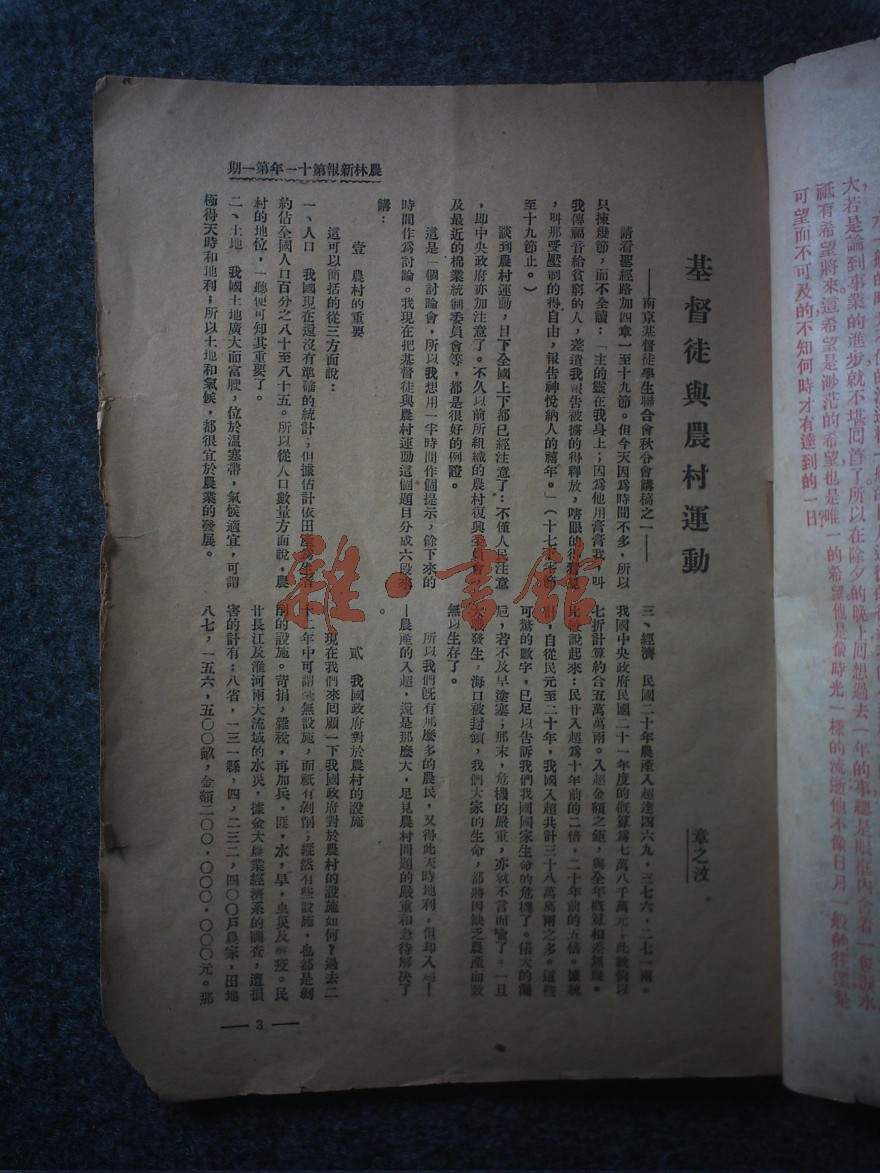 農林新報第十一年第一期
基督徒與農村運動
章之汶
——南京基督徒學生聯合會秋令會講稿之一——
請看聖經路加四章一至十九節。但今天因爲時間不多，所以
只揀幾節，而不全讀：「主的靈在我身上；因爲他用膏膏我，叫
我傳福音給貧窮的人，差遣我報告被擄的得釋放，瞎眼的得看見
，叫那受壓制的得自由，報告神悅納人的禧年。」（十七
至十九節止。）
談到農村運動，目下全國上下都已經注意了：不僅人民注意
，即中央政府亦加注意了。不久以前所組織的農村復興委員會
及最近的棉業統制委員會等，都是很好的例證。
這是一個討論會，所以我想用一半時間作個提示，餘下來的
時間作爲討論。我現在把基督徒與農村運動這個題目分成六段來
講：
壹　農村的重要
這可以簡括的從三方面說：
一、人口　我國現在還沒有準確的統計；但據估計依田
約佔全國人口百分之八十至八十五。所以從人口數量方面說，農
村的地位，一聽便可知其重要了。
二、土地　我國土地廣大而富腴，位於溫寒帶，氣候適宜，可謂
極得天時和地利；所以土地和氣候，都很宜於農業的發展。
三、經濟　民國二十年農產入超達四六九，三七六，二七一兩。
我國中央政府民國二十一年度的概算爲七萬八千萬元；此數倘以
七折計算約合五萬萬兩。入超金額之鉅，與全年概算相差無幾。
比較說起來：民廿入超爲十年前的二倍，二十年前的五倍。據統
計，自從民元至二十年，我國入超共計三十八萬萬兩之多。這些
可驚的數字，已足以告訴我們我國國家生命的危機了。偌大的漏
巵，若不及早塗塞；那末，危機的嚴重，亦就不言而喻了。一旦
大戰發生，海口被封鎖，我們大家的生命，都將因缺乏農產而致
無以生存了。
所以我們旣有那麼多的農民，又得此天時地利，但却入超—
—農產的入超，還是那麼大，足見農村問題的嚴重和急待解決了
。
貳　我國政府對於農村的設施
現在我們來回顧一下我國政府對於農村的設施如何？過去二
十二年中可謂毫無設施，而祇有剝削；縱然有些設施，也都是剝
削的設施。苛捐，雜稅，再加兵，匪，水，旱，虫災及疫。民
廿長江及淮河兩大流域的水災，據金大農業經濟系的調查，遭損
害的計有：八省，一三一縣，四，二三二，四〇〇戶農家，田地
八七，一五六，五〇〇畝，金額二〇〇・〇〇〇・〇〇〇元。那
— 3 —
大若是論到事業的進步就不堪回首了所以在除夕的晚上回想過去一年的事總是眼框內含着一
祇有希望將來這希望是渺茫的希望也是唯一的希望他是像時光一樣的流逝他不像日月一般的往還是
可望而不可及的不知何時才有達到的一日
雜·書館